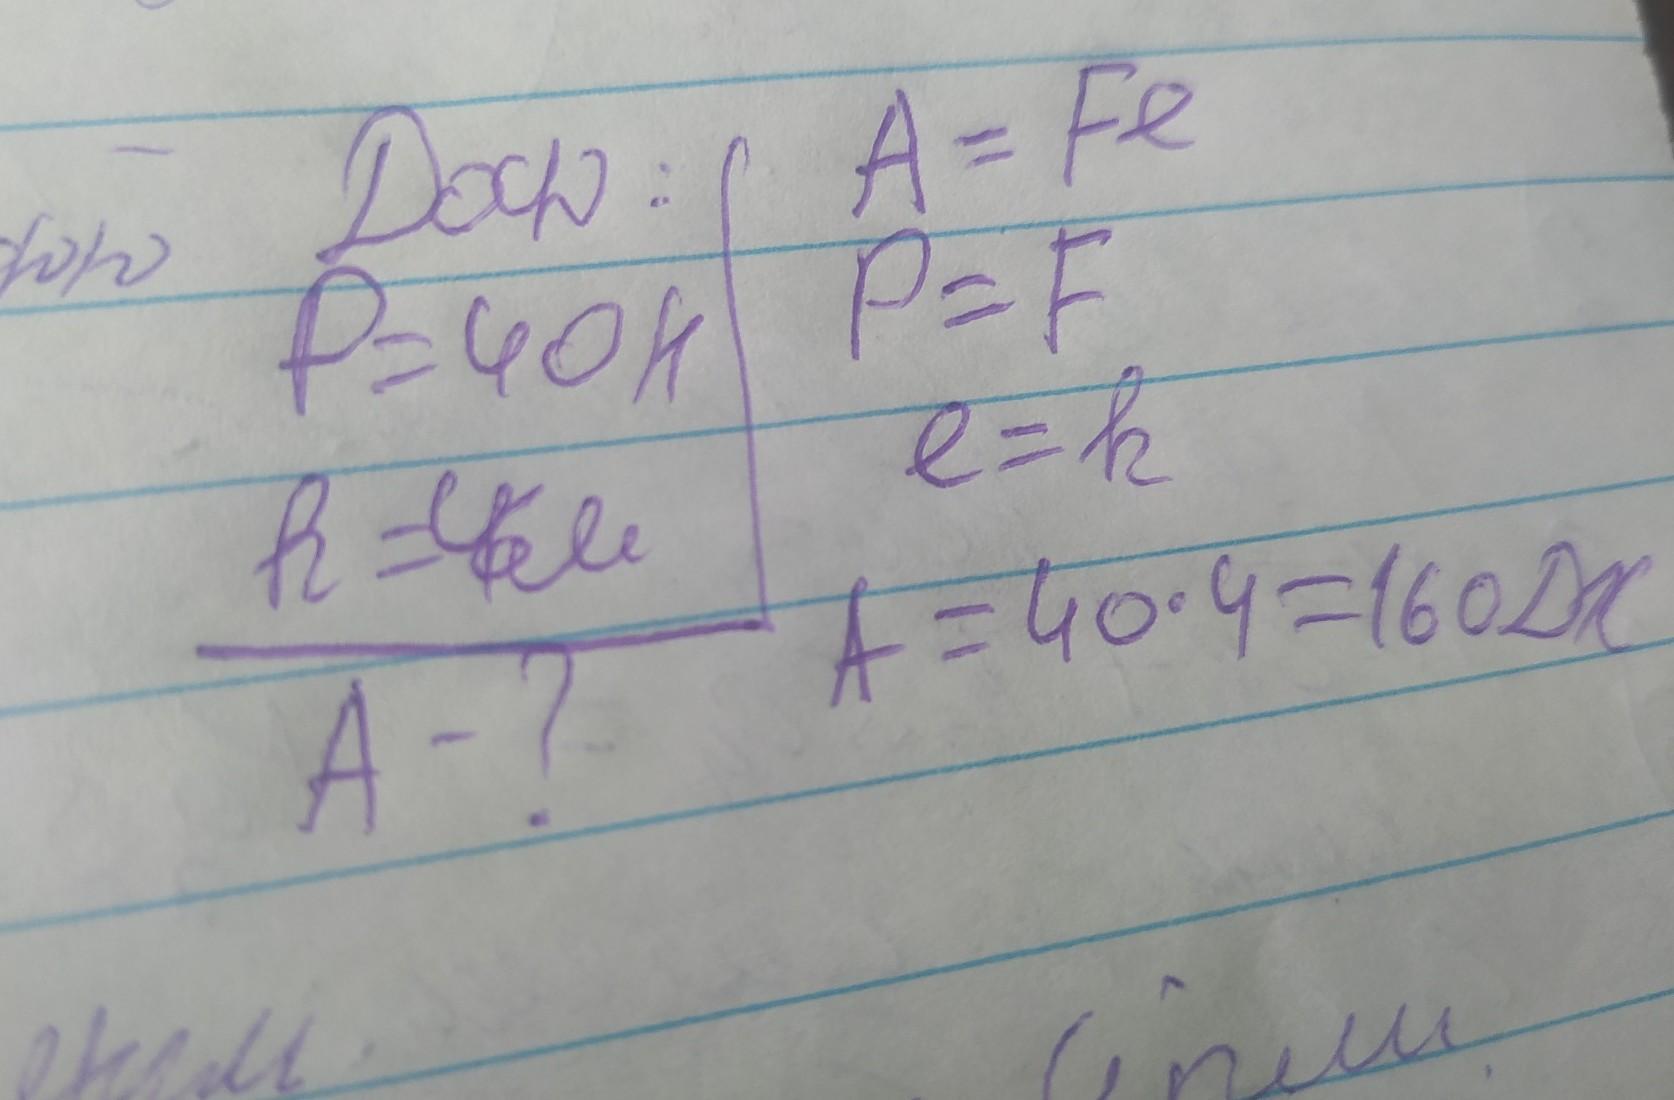 Дано:
P = 40 Н
h = 4 м
A - ?
A = Fe
P = F
e = h
A = 40 · 4 = 160 Дж